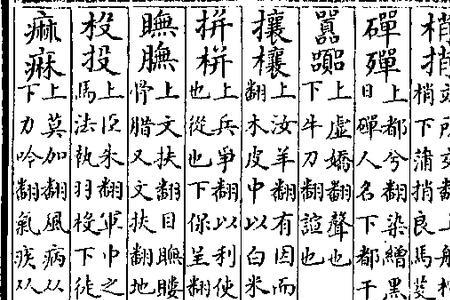 梢捎
梢下蒲捎良馬
磾殫
上都兮翻染繒黑
日磾人名下都干
囂
上虛嬌翻聲也
下牛刀翻諠也
攘欀
上汝羊翻有因而
翻木皮中以白米
拼栟
上兵爭翻以利使
也從也下保呈翻
瞴膴
上文扶翻目瞴瞜
骨腊又文扶翻地
杸投
上臣朱翻軍中之
馬法執羽杸下徒
痲痳
上莫加翻風病从
下力吟翻氣疾从